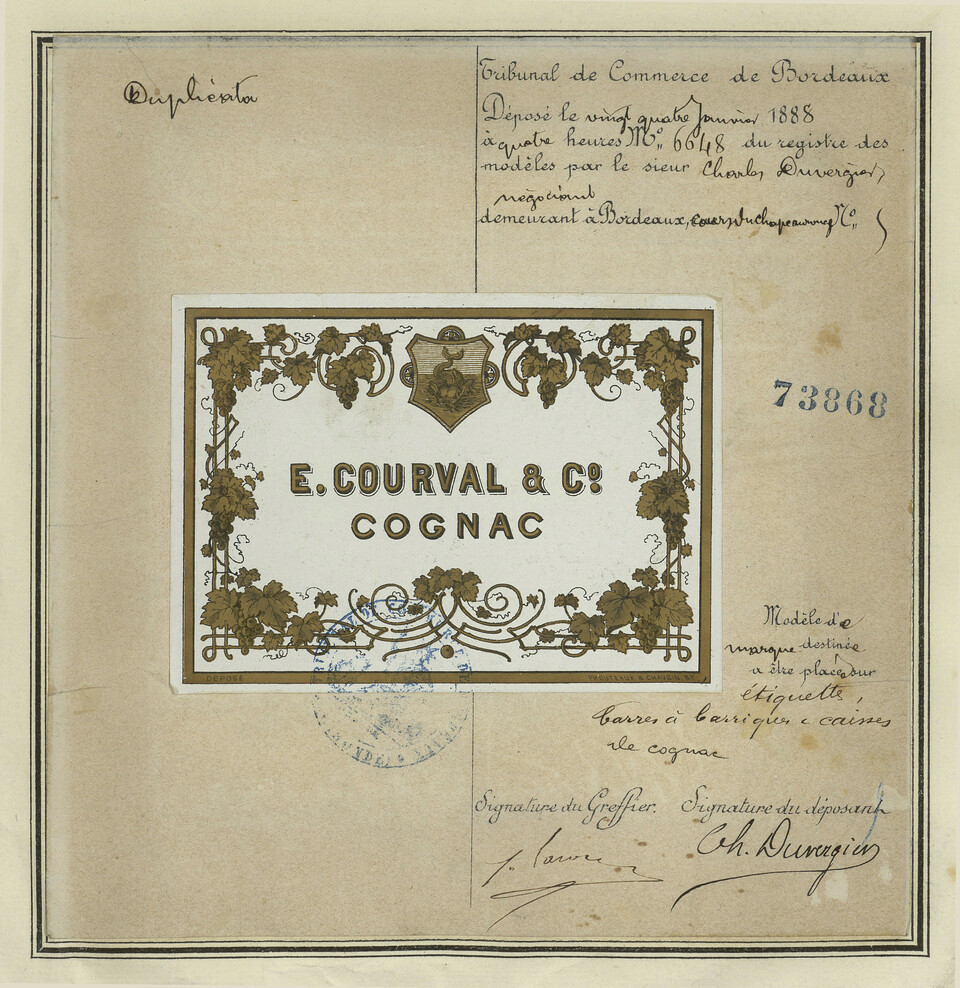 Duplicata
Tribunal de Commerce de Bordeaux
Déposé le vingt quatre Janvier 1888
à quatre heures Nº 6648 du registre des
modèles par le sieur Charles Duvergier,
négociant
demeurant à Bordeaux, cours du chapeau rouge Nº
73868
E. COURVAL & Cº
COGNAC
DÉPOSÉ
Modèle de
marque destinée
a être placée sur
étiquette,
barres à barriques & caisses
de cognac
Signature du Greffier. Signature du déposant
Ch. Duvergier